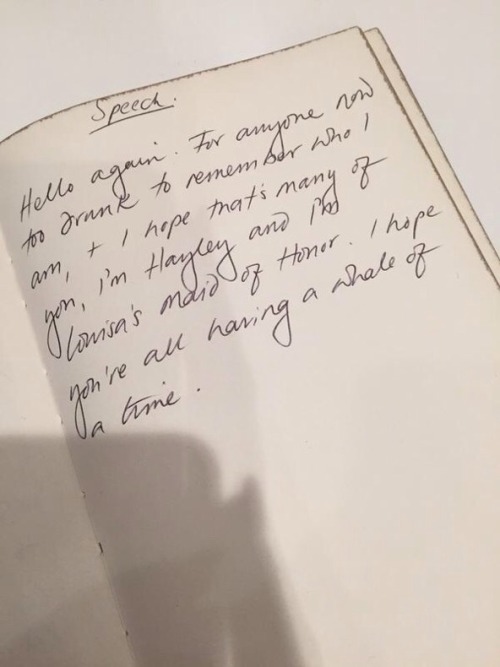 Speech.
Hello again. For anyone now
too drunk to remember who I
am, + I hope that's many of
you, I'm Hayley and I'm
Louisa's Maid of Honor. I hope
you're all having a whale of
a time.